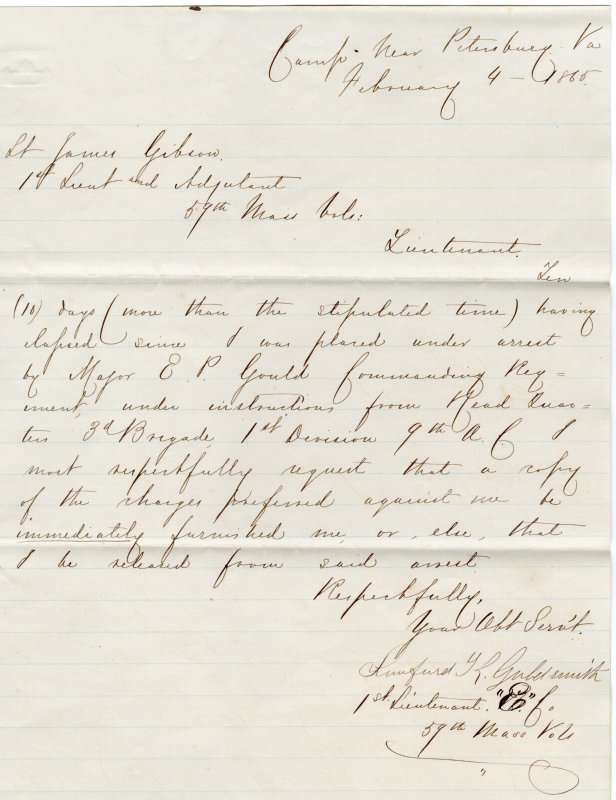 Camp Near Petersburg Va
February 4 – 1865.
Lt James Gibson.
1st Lieut and Adjutant
59th Mass Vols:
Lieutenant.
Ten
(10) days (more than the stipulated time) having
elapsed since I was placed under arrest
by Major E P. Gould Commanding Reg=
iment, under instructions from Head Quar=
ters 3d Brigade, 1st Division 9th A. C I
most respectfully request that a copy
of the charges preferred against me be
immediately furnished me, or, else, that
I be released from said arrest.
Respectfully,
Your Obt Servt.
Goldsmith
1st Lieutenant. "E" Co.
59th Mass Vols